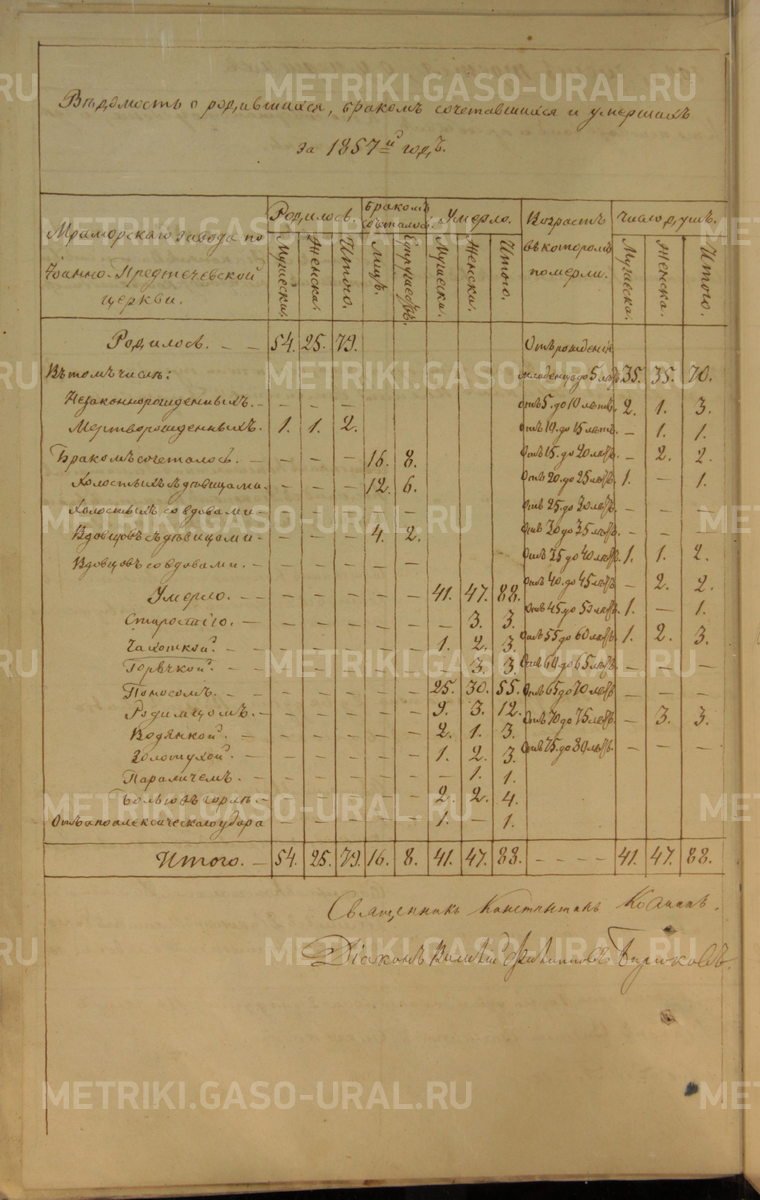 Вѣдомость о родившихся, бракомъ сочетавшихся и умершихъ
за 1857й годъ.
Мраморскаго завода по Іоанно-Предтечевской церкви.
Родилось. Бракомъ сочеталось. Умерло. Возрастъ въ которомъ померли. Число душъ.
Мужеска. Женска. Итого. Лицъ. Супружествъ. Мужеска. Женска. Итого. Мужеска. Женска. Итого.
Родилось. — — 54. 25. 79. Отъ рожденія
Въ томъ числѣ: младенцевъ до 5 лѣтъ. 35. 35. 70.
Незаконнорожденныхъ. — — — — отъ 5. до 10 лѣтъ. 2. 1. 3.
Мертворожденныхъ. 1. 1. 2. Отъ 10. до 15 лѣтъ. — 1. 1.
Бракомъ сочеталось. — — — — 16. 8. Отъ 15. до 20 лѣтъ. — 2. 2.
Холостыхъ съ дѣвицами. — — — 12. 6. Отъ 20. до 25 лѣтъ. 1. — 1.
Холостыхъ со вдовами — — — — — — Отъ 25. до 30 лѣтъ. — — —
Вдовцовъ съ дѣвицами — — — — 4. 2. Отъ 30 до 35 лѣтъ. — — —
Вдовцовъ со вдовами. — — — — — — Отъ 35 до 40 лѣтъ. 1. 1. 2.
Умерло. — — — — — — — 41. 47. 88. Отъ 40. до 45 лѣтъ. — 2. 2.
Старостію. — — — — — — 3. 3. Отъ 45 до 50 лѣтъ. 1. — 1.
Чахоткой. — — — — — — 1. 2. 3. Отъ 55 до 60 лѣтъ. 1. 2. 3.
Горячкой. — — — — — — 3. 3. Отъ 60 до 65 лѣтъ. — — —
Поносомъ. — — — — — — 25. 30. 55. Отъ 65 до 70 лѣтъ. — — —
Родимцомъ. — — — — — — 9. 3. 12. Отъ 70 до 75 лѣтъ. — 3. 3.
Водянкой. — — — — — — 2. 1. 3. Отъ 75. до 80 лѣтъ.
Золотухой. — — — — — — 1. 2. 3.
Параличемъ. — — — — — — 1. 1.
Болью въ горлѣ. — — — — — 2. 2. 4.
Отъ апоплексическаго удара — — — — — 1. — 1.
Итого. — 54. 25. 79. 16. 8. 41. 47. 88. — — — — 41. 47. 88.
Священникъ Константинъ
Діаконъ
METRIKI.GASO-URAL.RU